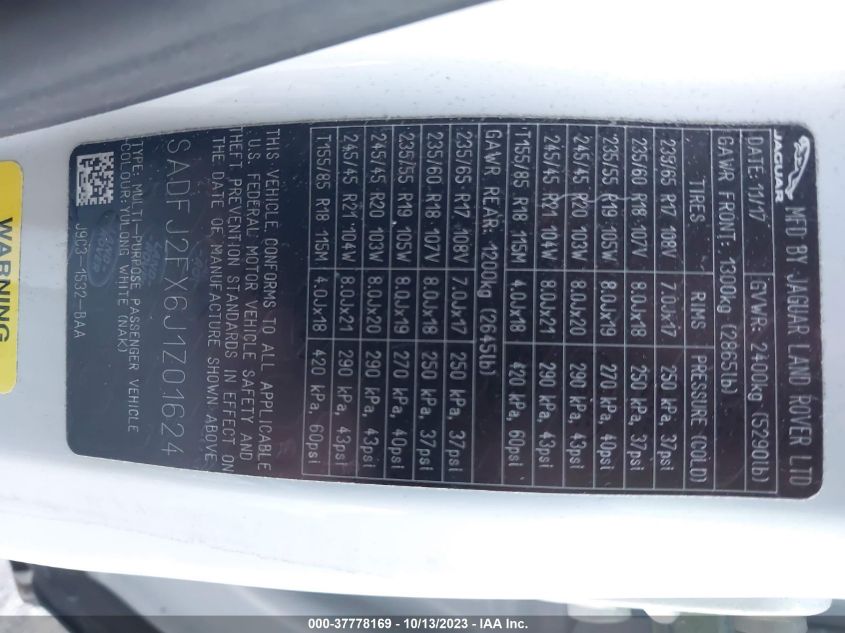 JAGUAR
MFD BY JAGUAR LAND ROVER LTD
DATE: 11/17 GVWR: 2400kg (5290lb)
GAWR FRONT: 1300kg (2865lb)
TIRES RIMS PRESSURE (COLD)
235/65 R17 108V 7.0Jx17 250 kPa, 37psi
235/60 R18 107V 8.0Jx18 250 kPa, 37psi
235/55 R19 105W 8.0Jx19 270 kPa, 40psi
245/45 R20 103W 8.0Jx20 290 kPa, 43psi
245/45 R21 104W 8.0Jx21 290 kPa, 43psi
T155/85 R18 115M 4.0Jx18 420 kPa, 60psi
GAWR REAR: 1200kg (2645lb)
235/65 R17 108V 7.0Jx17 250 kPa, 37psi
235/60 R18 107V 8.0Jx18 250 kPa, 37psi
235/55 R19 105W 8.0Jx19 270 kPa, 40psi
245/45 R20 103W 8.0Jx20 290 kPa, 43psi
245/45 R21 104W 8.0Jx21 290 kPa, 43psi
T155/85 R18 115M 4.0Jx18 420 kPa, 60psi
THIS VEHICLE CONFORMS TO ALL APPLICABLE
U.S. FEDERAL MOTOR VEHICLE SAFETY AND
THEFT PREVENTION STANDARDS IN EFFECT ON
THE DATE OF MANUFACTURE SHOWN ABOVE
SADFJ2FX6J1Z01624
TYPE: MULTI-PURPOSE PASSENGER VEHICLE
COLOUR: YULONG WHITE (NAK)
J9C3-1532-BAA
WARNING
000-37778169 - 10/13/2023 - IAA Inc.